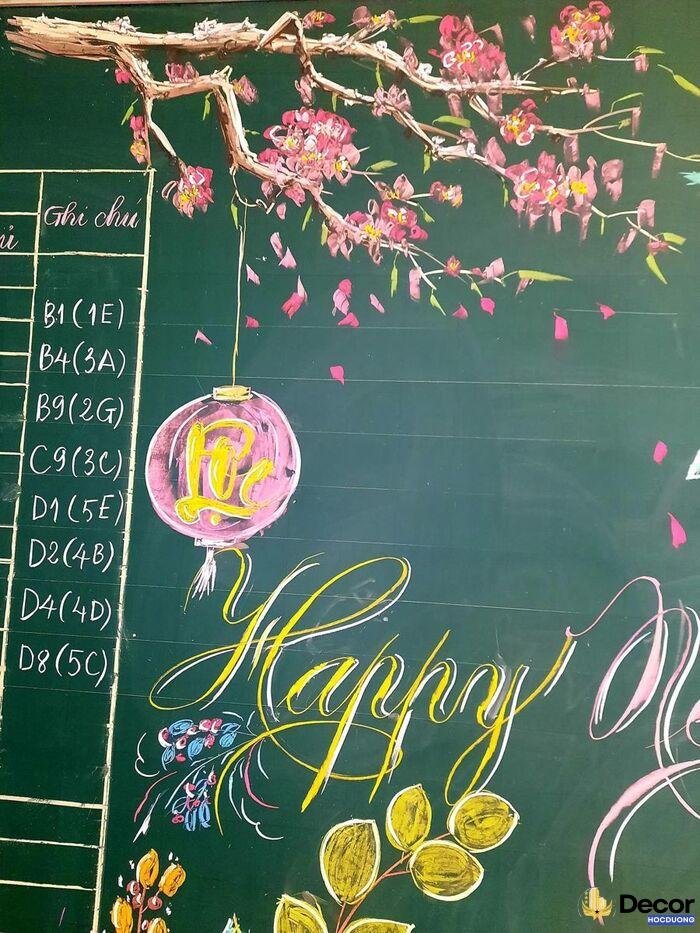 Ghi chú
B1(1E)
B4(3A)
B9(2G)
C9(3C)
D1(5E)
D2(4B)
D4(4D)
D8(5C)
Lộc
Happy
Decor
HOCDUONG